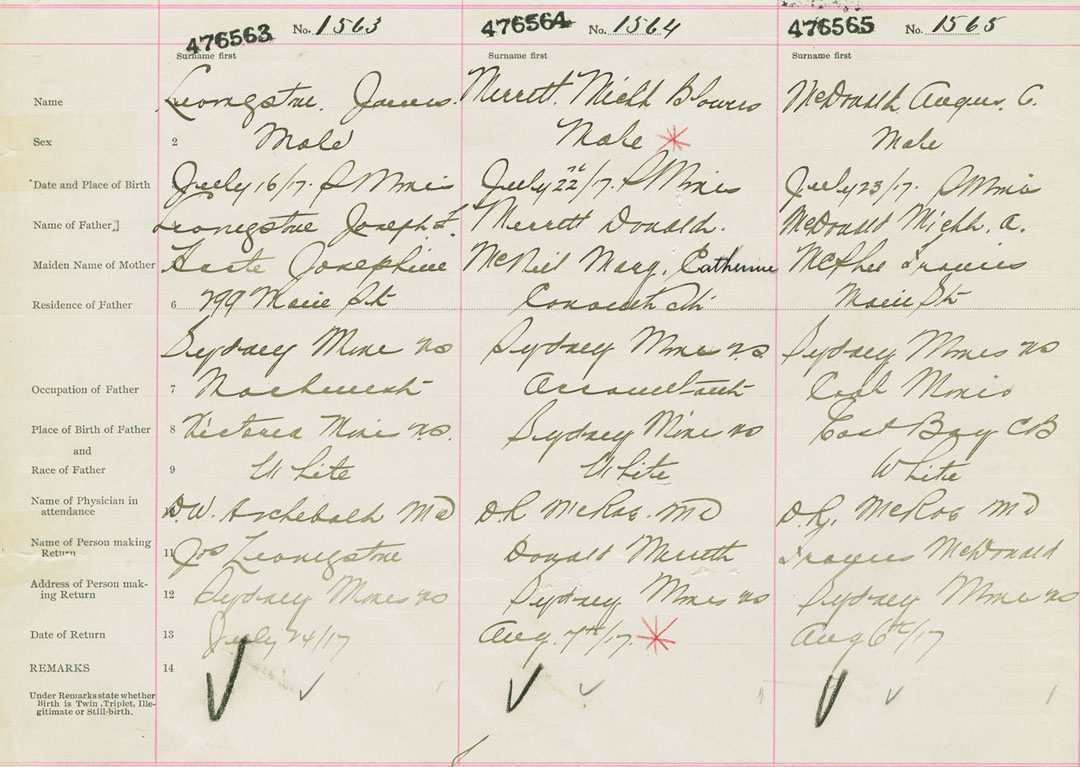 476563 No. 1563 476564 No. 1564 476565 No. 1565
Surname first Surname first Surname first
Name Livingstone. James. Merrett. Michl Blowers McDonald Angus. C.
Sex 2 Male Male Male
Date and Place of Birth July 16/17. S Mines July 22nd/17. S Mines July 23/17. S Mines
Name of Father Livingstone Joseph F. Merrett Donald. McDonald Michl. A.
Maiden Name of Mother Josephine McNeil Mary. Catherine McPhee Francis
Residence of Father 6 799 Main St Main St
Sydney Mine NS Sydney Mines NS Sydney Mines NS
Occupation of Father 7 Machinist Accountant Coal Miner
Place of Birth of Father 8 Victoria Mine NS. Sydney Mine NS East Bay CB
and
Race of Father 9 White White White
Name of Physician in
attendance D.W. Archibald MD D.R McRae. MD D.R. McRae MD
Name of Person making
Return 11 Jos Livingstone Donald Merrett Francis McDonald
Address of Person mak-
ing Return 12 Sydney Mines NS Sydney Mines NS Sydney Mine NS
Date of Return 13 July 24/17 Aug. 7th/17. Aug 6th/17
REMARKS 14
Under Remarks state whether
Birth is Twin, Triplet, Ille-
gitimate or Still-birth.